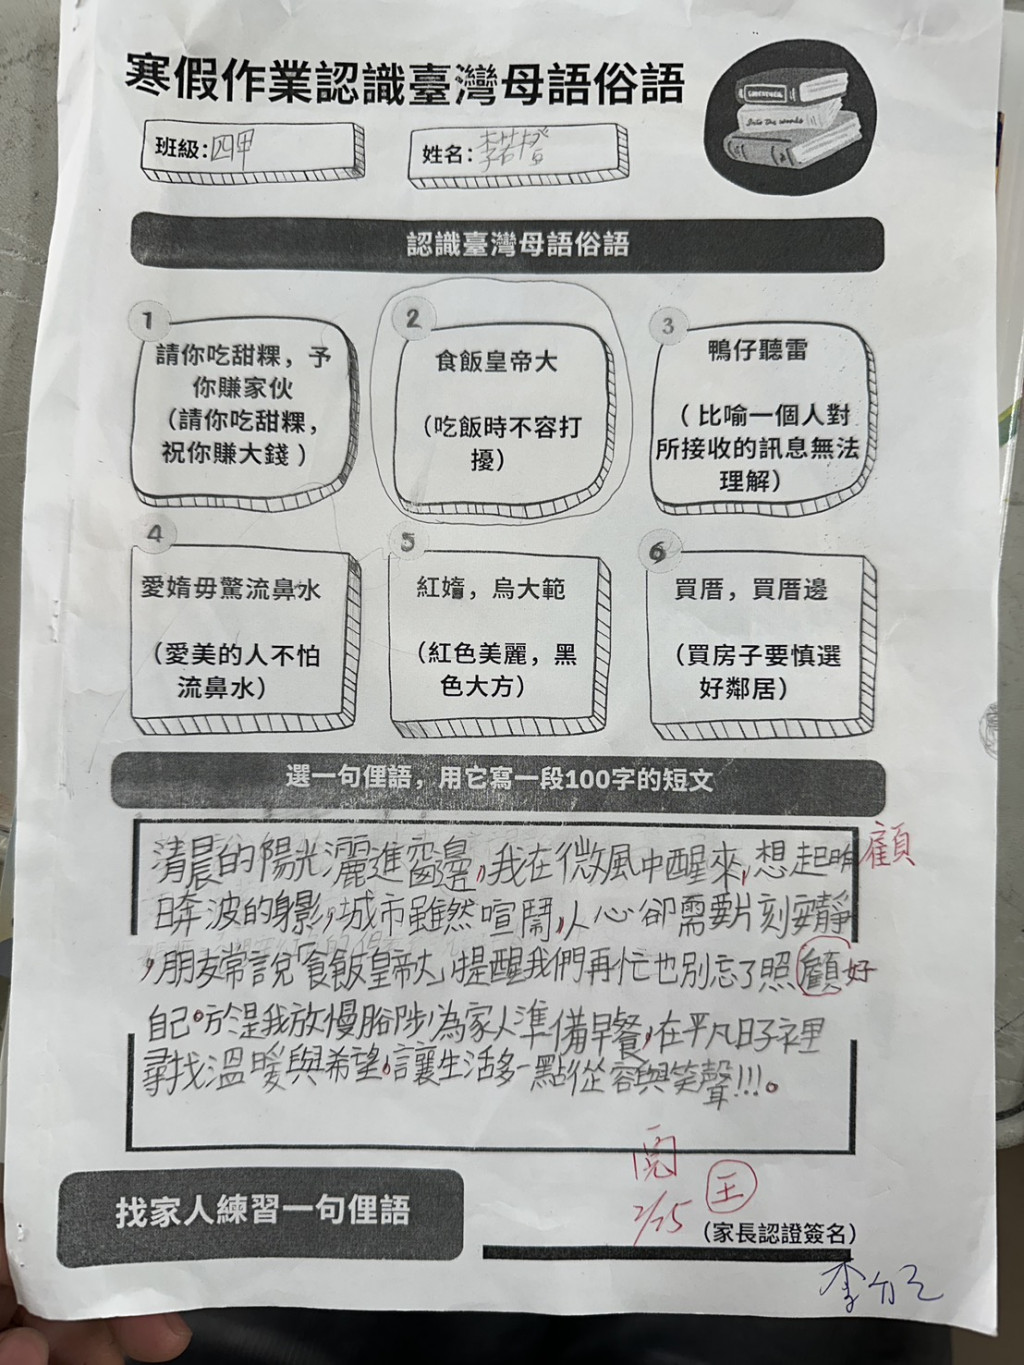 寒假作業認識臺灣母語俗語
班級:四甲
姓名:李
LITERATURE
Into the woods
認識臺灣母語俗語
1
請你吃甜粿，予
你賺家伙
（請你吃甜粿，
祝你賺大錢）
2
食飯皇帝大
（吃飯時不容打
擾）
3
鴨仔聽雷
（比喻一個人對
所接收的訊息無法
理解）
4
愛媠毋驚流鼻水
（愛美的人不怕
流鼻水）
5
紅媠，烏大範
（紅色美麗，黑
色大方）
6
買厝，買厝邊
（買房子要慎選
好鄰居）
選一句俚語，用它寫一段100字的短文
清晨的陽光灑進窗邊，我在微風中醒來，想起昨
日奔波的身影，城市雖然喧鬧，人心卻需要片刻安靜
，朋友常說「食飯皇帝大」提醒我們再忙也別忘了照顧好
顧
自己。於是我放慢腳步，為家人準備早餐，在平凡日子裡
尋找溫暖與希望，讓生活多一點從容與笑聲!!!。
閱
2/25
王
找家人練習一句俚語
（家長認證簽名）